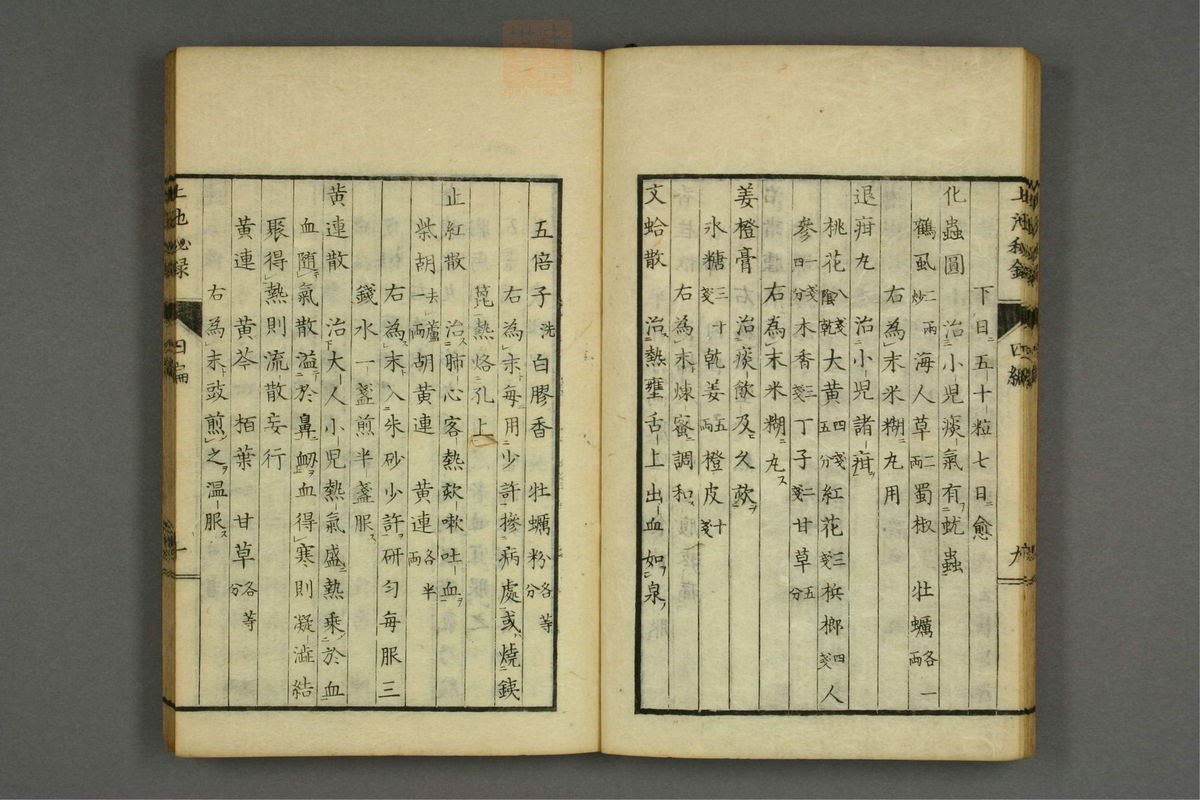 下日五十粒七日愈
化蟲圓 治小児痰気有蚘蟲
鶴虱二両炒 海人草二両 蜀椒 牡蠣各一両
右為末米糊丸用
退疳丸 治小児諸疳
桃花八戔陰乾 大黄四戔五分 紅花三戔 梹榔四戔 人
参一戔四分 木香三戔 丁子二戔 甘草五分
右為末米糊丸
姜橙膏 治痰飲及久欬
氷糖三十戔 乾姜五両 橙皮十戔
右為末煉蜜調和
文蛤散 治熱壅舌上出血如泉
五倍子洗 白膠香 牡蠣粉各等分
右為末毎用少許摻病處或燒鐵
篦熱烙孔上
止紅散 治肺心客熱欬嗽吐血
柴胡去蘆一両 胡黄連 黄連各半両
右為末入朱砂少許研匀毎服三
錢水一盞煎半盞服
黄連散 治大人小児熱氣盛熱乗於血
血随氣散溢於鼻衂血得寒則凝澁結
聚得熱則流散妄行
黄連 黄芩 栢葉 甘草各等分
右為末豉煎之温服